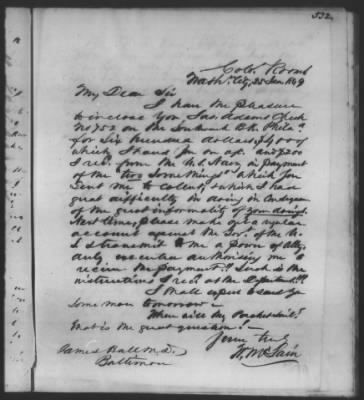 532.
Colo. Rooms
Wash. City, 25 Jan 1849
My Dear Sir
I have the pleasure
to inclose you Jas. Adams Check
No 752 on the Southwark Bk. Phila.
for Six Hundred dollars,
which I have for on
I recd. from the U.S. Navy in payment
of the two Somethings which you
sent me to collect, & which I had
great difficulty in doing in consequence
of the great informality of your doings.
Next time, please make out a regular
account against the Govt. of the U.S.
& transmit to me a power of Atty.
duly executed authorising me to
receive the payment. Such is the
instructions I recd. at the Department!!
I shall expect to send you
some more tomorrow.
When will the Packet sail?
that is the great question!
Yours truly
W. McLain
James Hall M.D.
Baltimore